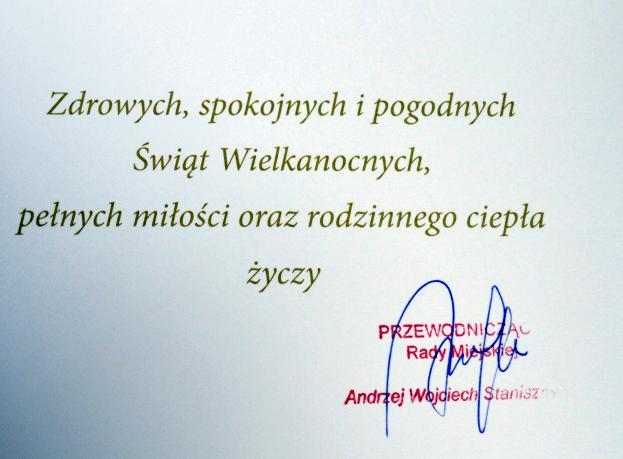 Zdrowych, spokojnych i pogodnych
Świąt Wielkanocnych,
pełnych miłości oraz rodzinnego ciepła
życzy
PRZEWODNICZĄC
Rady Miejskiej
Andrzej Wojciech